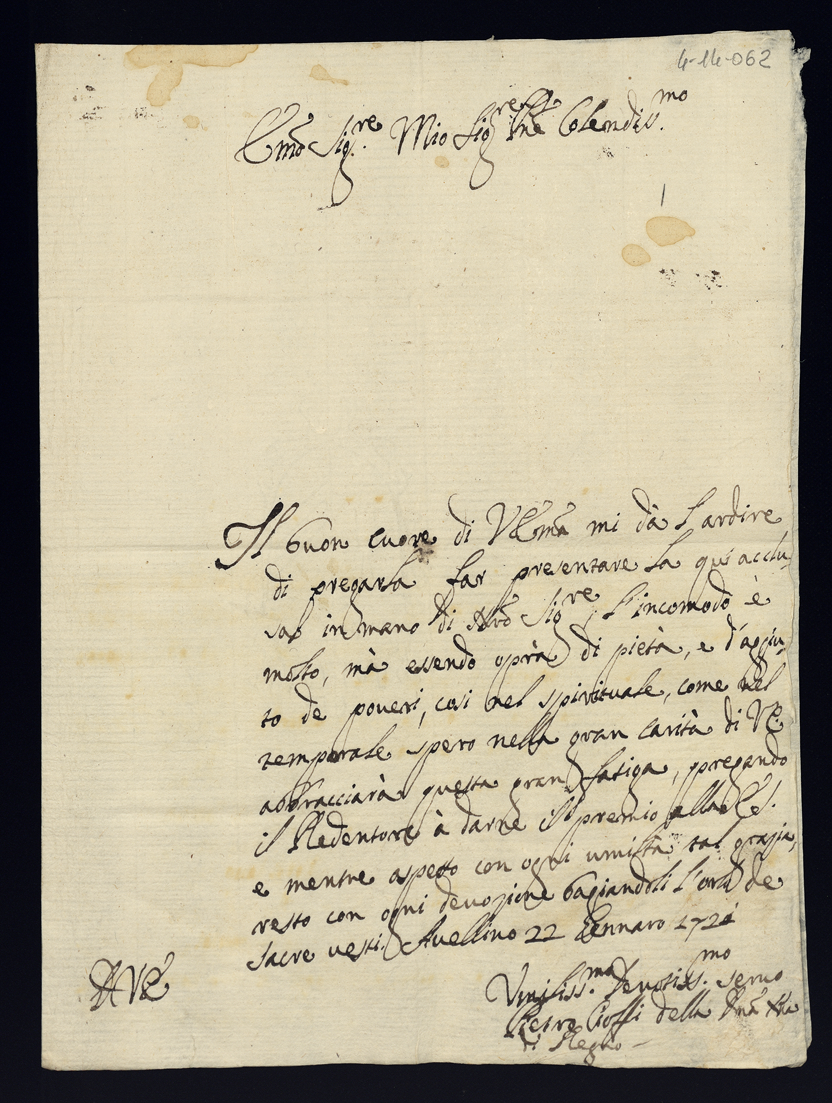 4-14-062
Em̃o Sig.re Mio Sig.re Pñe Colendiss.mo
Il buon cuore di VEm̃a mi dà l'ardire
di pregarla far presentare la qui acclu-
sa in mano di Sig.re, l'incomodo è
molto, mà essendo opra di pietà, e d'agiu-
to de poveri, così nel spirituale, come nel
temporale spero nella gran carità di VE.
abbracciarà questa gran fatiga, pregando
il Redentore à darne il premio alla
e mentre aspetto con ogni umiltà tal grazia,
resto con ogni devozione bagiandoli l'orlo de
sacre vesti. Avellino 22 Gennaro 172
A VE
Umiliss.mo Devotiss.mo servo
Pietro Cioffi della
di Regno